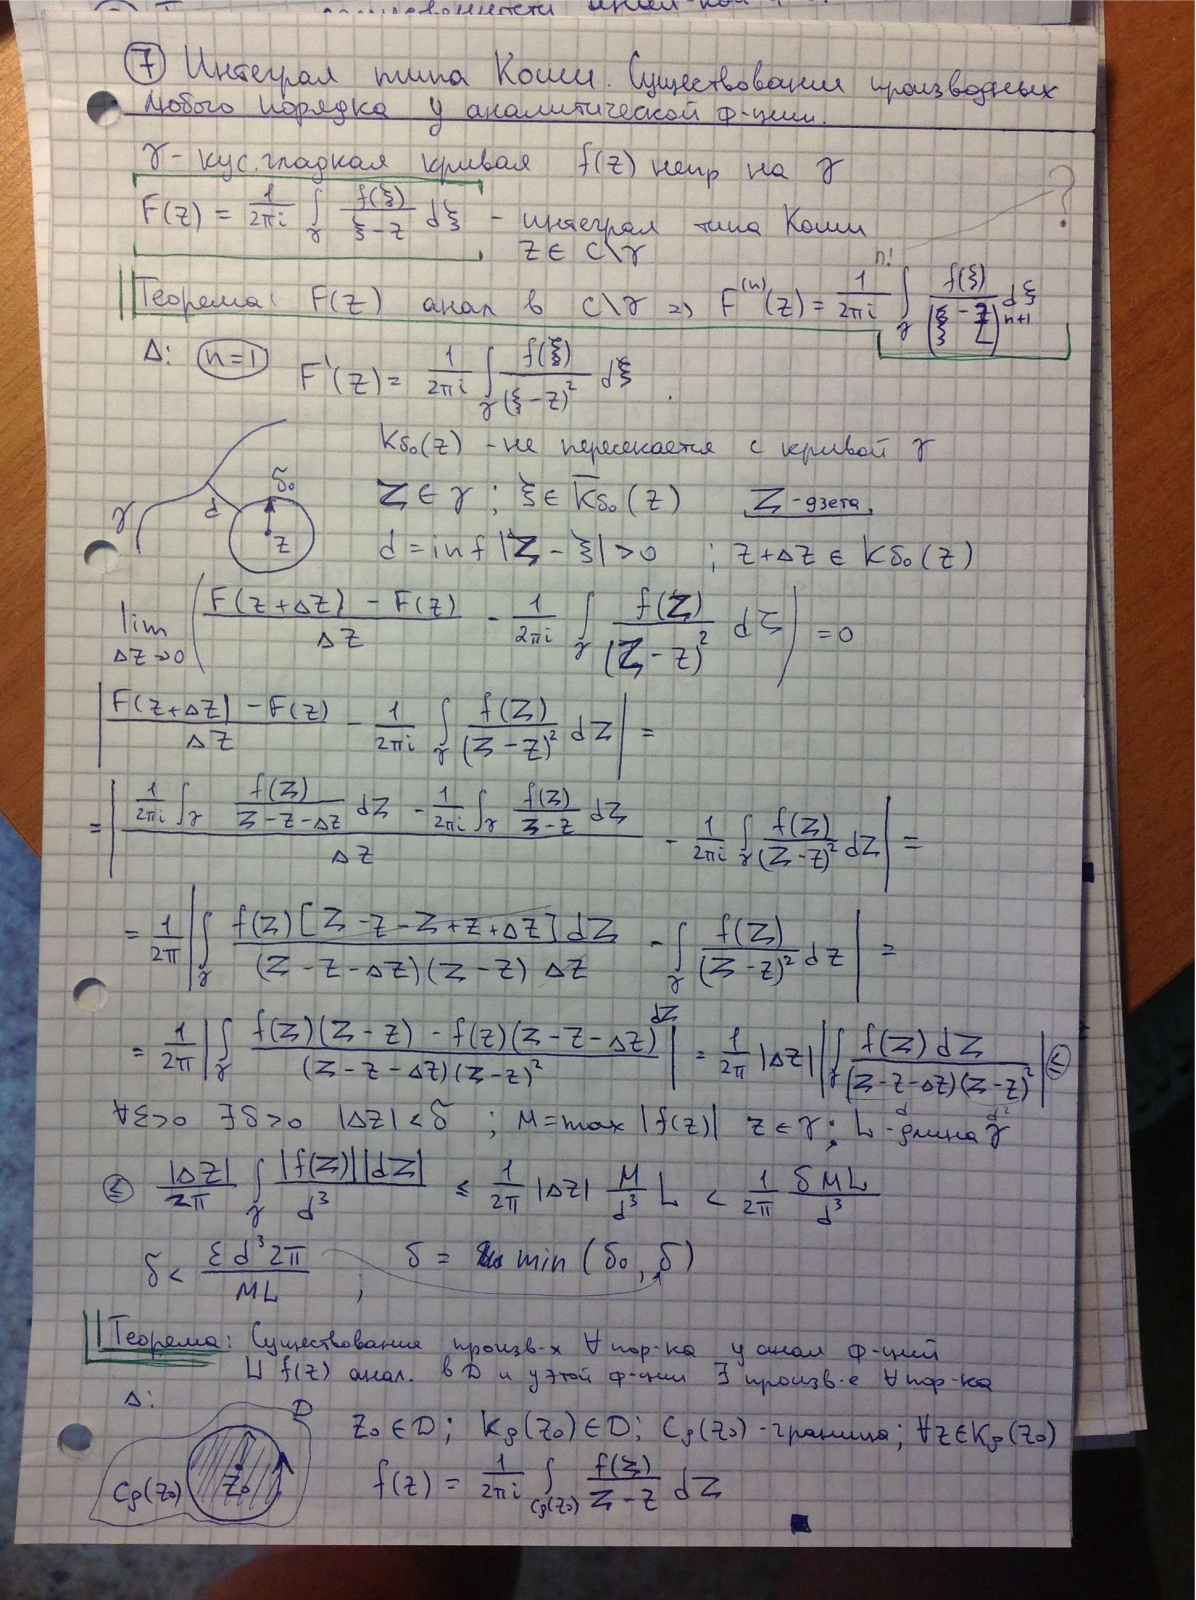 ⑦ Интеграл типа Коши. Существование производных
любого порядка у аналитической ф-ции.
γ - кус. гладкая кривая f(z) непр на γ
F(z) = 1/2πi ∫γ f(ξ)/(ξ - z) dξ - интеграл типа Коши
z ∈ C\γ
?
Теорема: F(z) анал в C\γ => F^(n)(z) = n! 1/2πi ∫γ f(ξ)/(ξ - z)^(n+1) dξ
Δ: (n=1) F'(z) = 1/2πi ∫γ f(ξ)/(ξ - z)² dξ
Kδ₀(z) - не пересекается с кривой γ
γ d δ₀ z
Ζ ∈ γ ; ξ ∈ K̅δ₀(z) Ζ - дзета.
d = inf |Ζ - ξ| > 0 ; z + Δz ∈ Kδ₀(z)
lim Δz→0 ( (F(z+Δz) - F(z))/Δz - 1/2πi ∫γ f(Ζ)/(Ζ - z)² dΖ ) = 0
| (F(z+Δz) - F(z))/Δz - 1/2πi ∫γ f(Ζ)/(Ζ - z)² dΖ | =
= | (1/2πi ∫γ f(Ζ)/(Ζ - z - Δz) dΖ - 1/2πi ∫γ f(Ζ)/(Ζ - z) dΖ)/Δz - 1/2πi ∫γ f(Ζ)/(Ζ - z)² dΖ | =
= 1/2π | ∫γ f(Ζ)[Ζ - z - Ζ + z + Δz] dΖ/((Ζ - z - Δz)(Ζ - z) Δz) - ∫γ f(Ζ)/(Ζ - z)² dz | =
= 1/2π | ∫γ (f(Ζ)(Ζ - z) - f(z)(Ζ - z - Δz))/((Ζ - z - Δz)(Ζ - z)²) dΖ | = 1/2π |Δz| | ∫γ f(Ζ) dΖ/((Ζ - z - Δz)(Ζ - z)²) | ≤
d d²
∀ε>0 ∃δ>0 |Δz| < δ ; M = max |f(z)| z ∈ γ ; L - длина γ
≤ |Δz|/2π ∫γ |f(Ζ)||dΖ|/d³ ≤ 1/2π |Δz| M/d³ L < 1/2π δML/d³
δ < εd³2π/ML ; δ = min (δ₀, δ)
Теорема: Существование произв-х ∀ пор-ка у анал ф-ций
⊔ f(z) анал. в D и у этой ф-ции ∃ произв-е ∀ пор-ка
Δ:
D
z₀ ∈ D ; Kρ(z₀) ∈ D ; Cρ(z₀) - граница ; ∀z ∈ Kρ(z₀)
Cρ(z₀) z₀
f(z) = 1/2πi ∫Cρ(z₀) f(Ζ)/(Ζ - z) dΖ